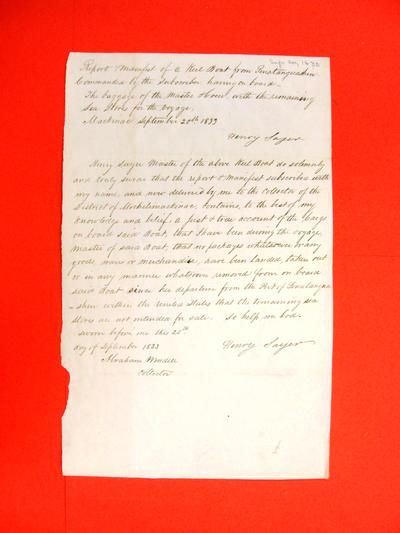 Report & Manifest of a Keel Boat from Penatangueshene
Commanded by the subscriber having on board.
The baggage of the Master & Crew, with the remaining
Sea Stores for the voyage.
Mackinac September 20th 1833
Henry Sayer
Henry Sayer Master of the above Keel Boat do solemnly
and truly swear that the report & Manifest subscribed with
my name, and now delivered by me to the Collector of the
District of Michilimackinac, contains, to the best of my
knowledge and belief, a just & true account of the Cargo
on board said Boat, that I have been during the voyage
Master of said Boat, that no packages whatsoever or any
goods wares or merchandise, have been landed, taken out
or in any manner whatsoever removed from on board
said Boat since her departure from the Port of
within the United States that the remaining sea
Stores are not intended for sale. So help me God.
Sworn before me this 20th
day of September 1833
Henry Sayer
Abraham Wendell
Collector